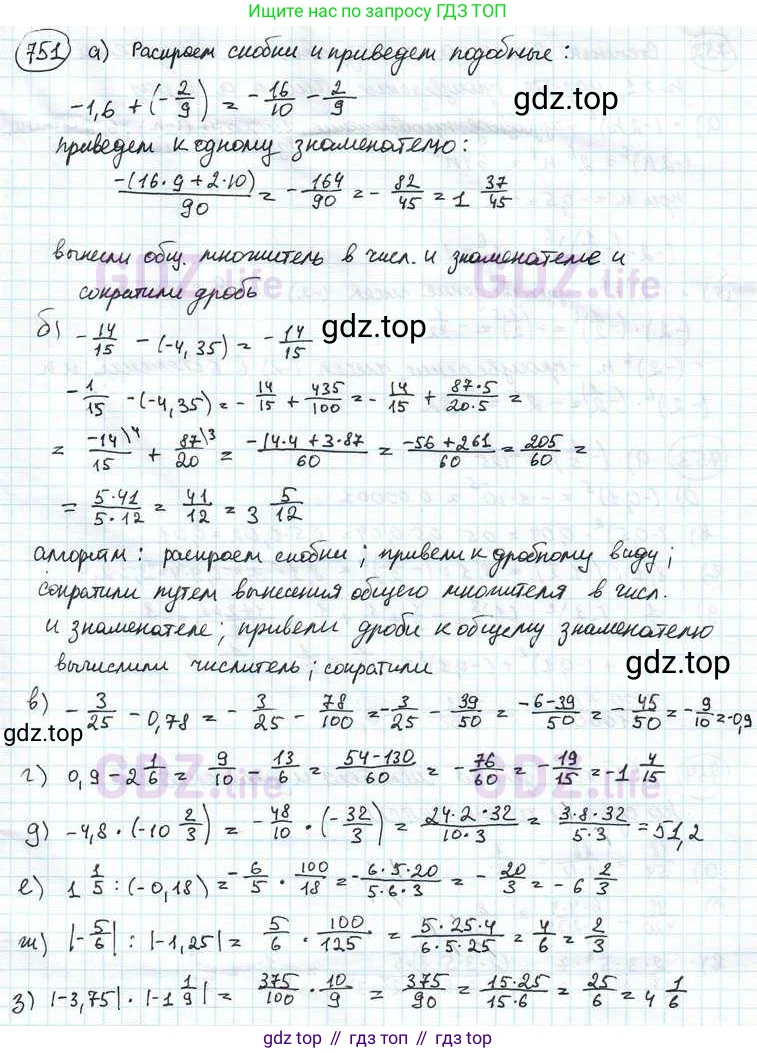 Ищите ответы по запросу ГДЗ ТОП
751 а) Раскроем скобки и приведем подобные :
-1,6 + (-2/9) = -16/10 - 2/9
gdz.top
приведем к одному знаменателю:
-(16·9+2·10)/90 = -164/90 = -82/45 = 1 37/45
вынесли общ. множитель в числ. и знаменателе и
GDZ.life GDZ.life
сократили дробь
б) -14/15 - (-4,35) = -14/15
gdz.top
-1/15 - (-4,35) = -14/15 + 435/100 = -14/15 + 87·5/20·5 =
= -14\4/15 + 87\3/20 = -14·4+3·87/60 = -56+261/60 = 205/60 =
= 5·41/5·12 = 41/12 = 3 5/12
gdz.top
алгоритм : раскроем скобки ; привели к дробному виду ;
сократили путем вынесения общего множителя в числ.
и знаменателе ; привели дроби к общему знаменателю
вычислили числитель ; сократили
gdz.top
в) -3/25 - 0,78 = -3/25 - 78/100 = -3/25 - 39/50 = -6-39/50 = -45/50 = -9/10 = -0,9
gdz.top
GDZ.life GDZ.life
г) 0,9 - 2 1/6 = 9/10 - 13/6 = 54-130/60 = -76/60 = -19/15 = -1 4/15
д) -4,8 · (-10 2/3) = -48/10 · (-32/3) = 24·2·32/10·3 = 3·8·32/5·3 = 51,2
е) 1 1/5 : (-0,18) = -6/5 · 100/18 = -6·5·20/5·6·3 = -20/3 = -6 2/3
ж) |-5/6| : |-1,25| = 5/6 · 100/125 = 5·25·4/6·5·25 = 4/6 = 2/3
з) |-3,75| · |-1 1/9| = 375/100 · 10/9 = 375/90 = 15·25/15·6 = 25/6 = 4 1/6
gdz.top // гдз топ // gdz.top // гдз.топ // gdz.top